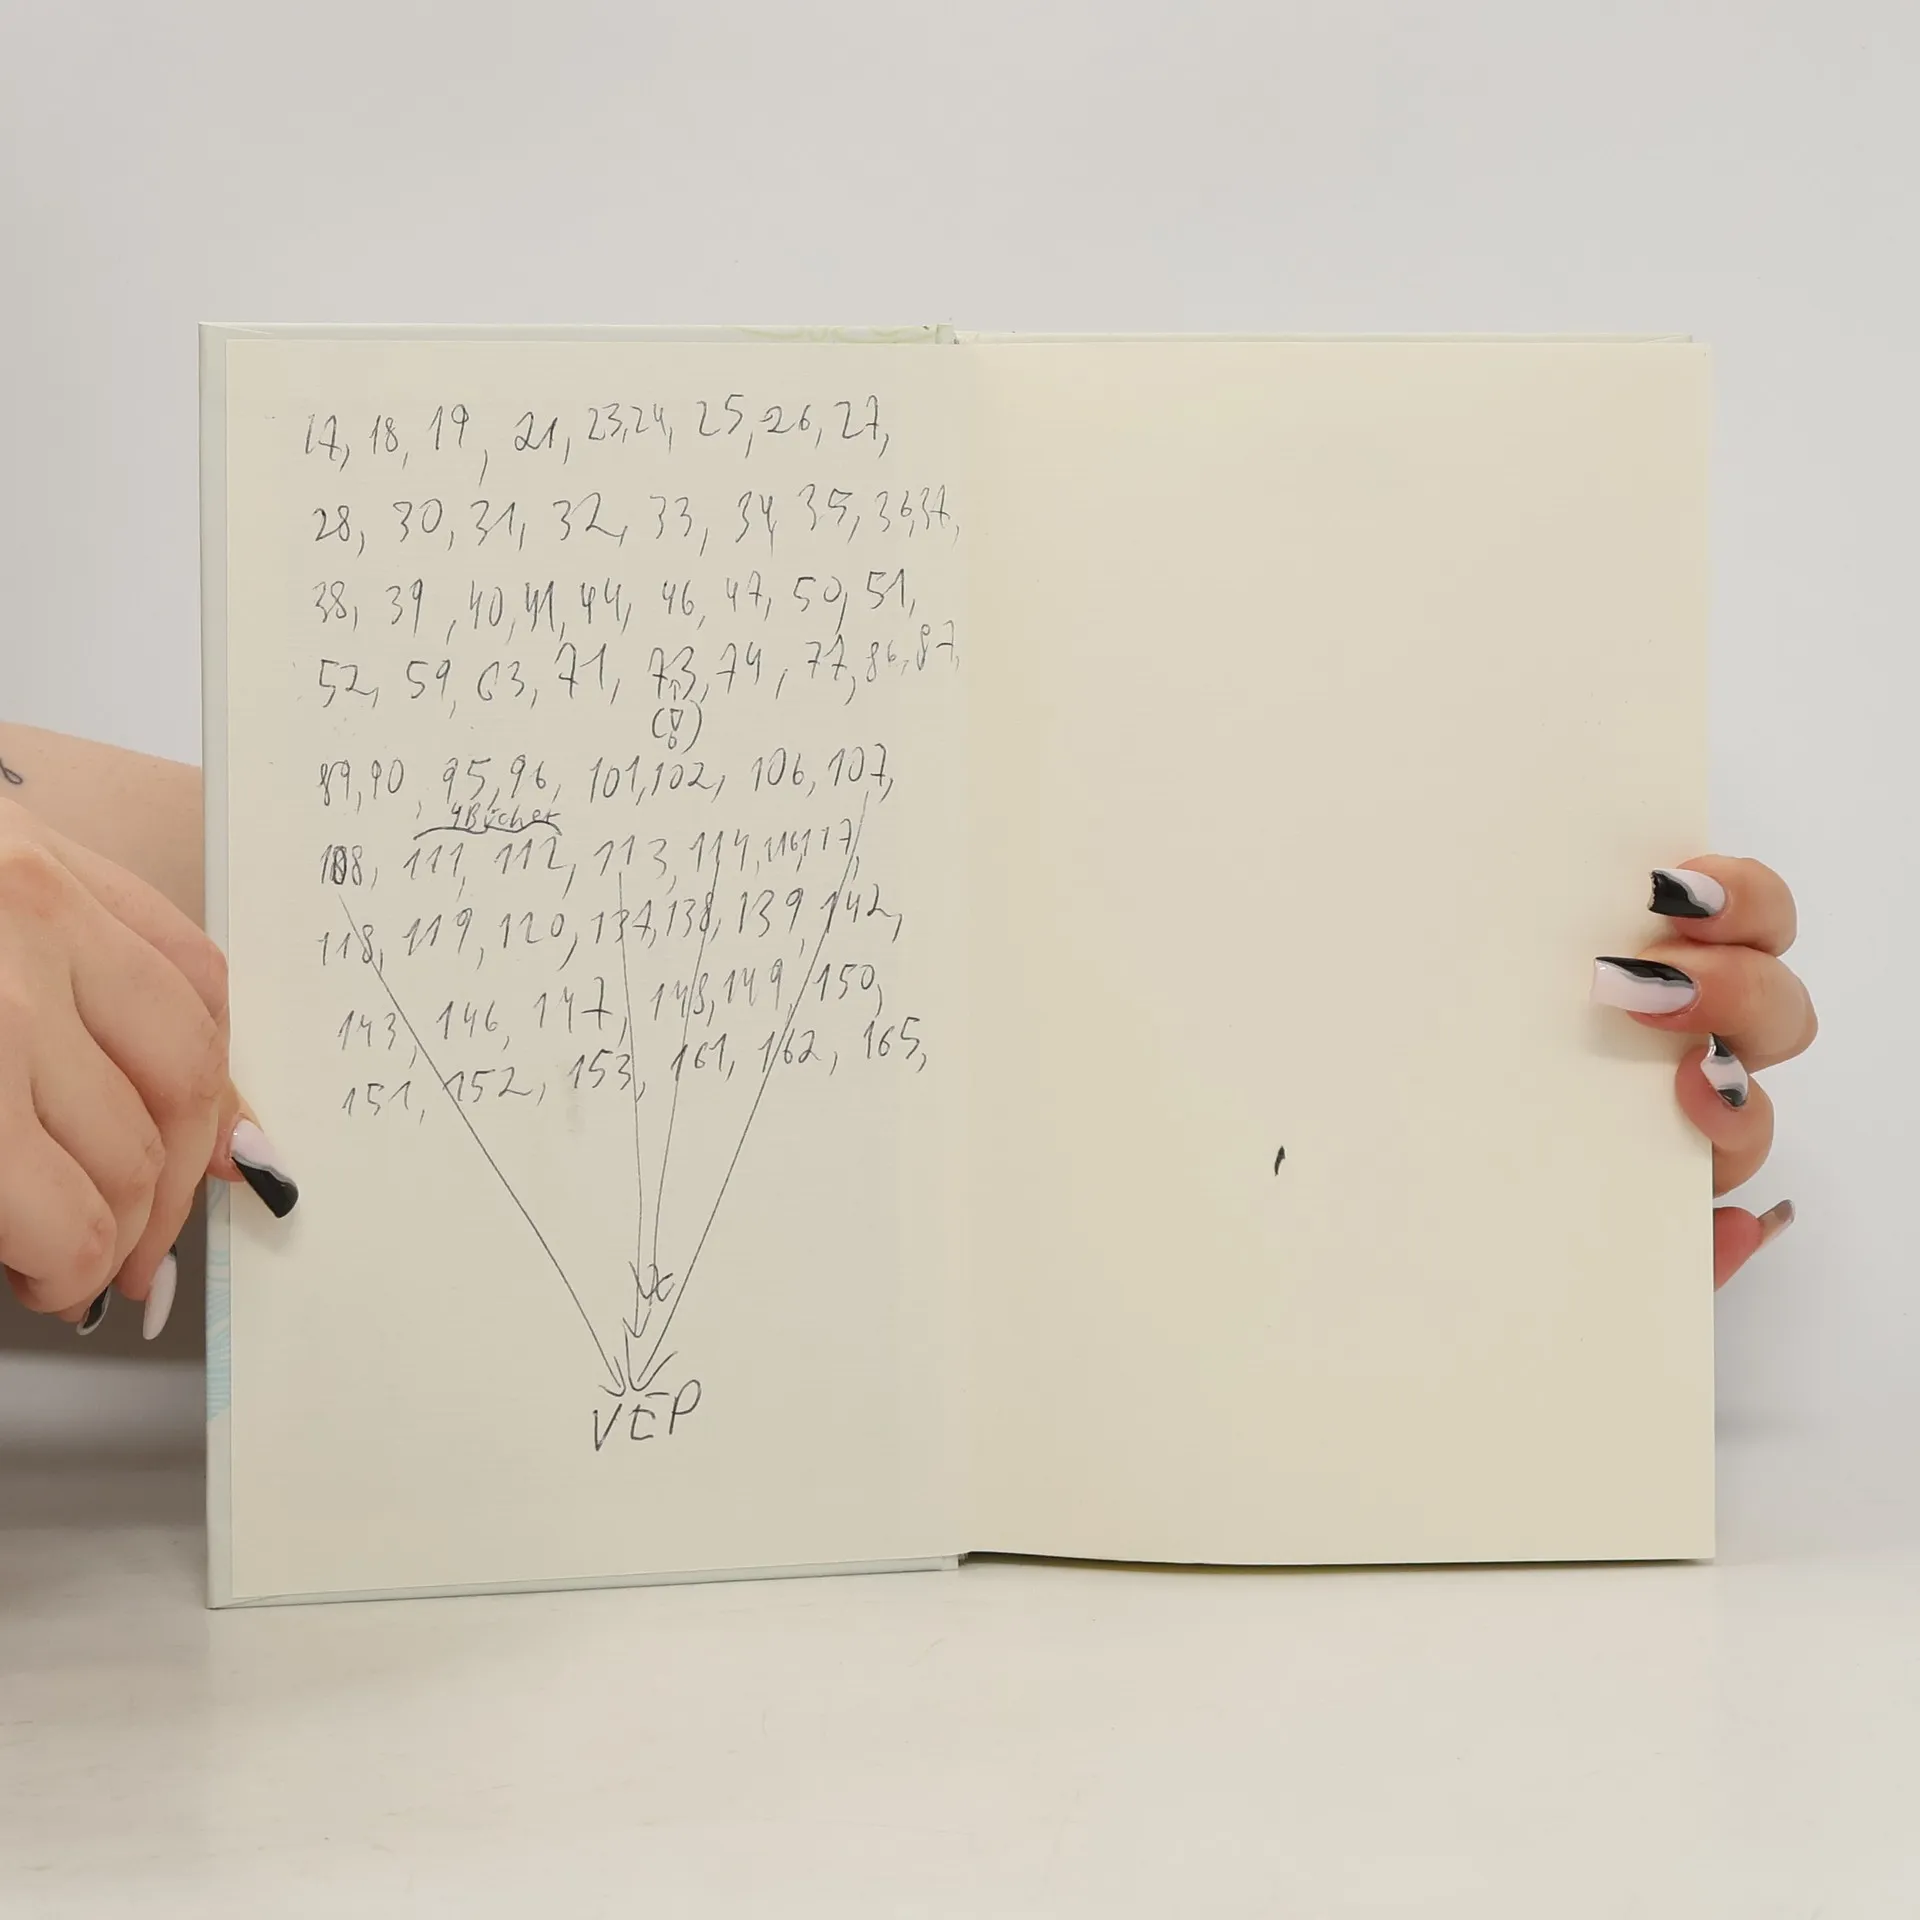 17, 18, 19, 21, 23, 24, 25, 26, 27,
28, 30, 31, 32, 33, 34, 35, 36, 37,
38, 39, 40, 41, 44, 46, 47, 50, 51,
52, 59, 63, 71, 73, 74, 77, 86, 87,
89, 90, 95, 96, 101, 102, 106, 107,
4 Bücher
108, 111, 112, 113, 114, 116, 117,
118, 119, 120, 137, 138, 139, 142,
143, 146, 147, 148, 149, 150,
151, 152, 153, 161, 162, 165,
VEP